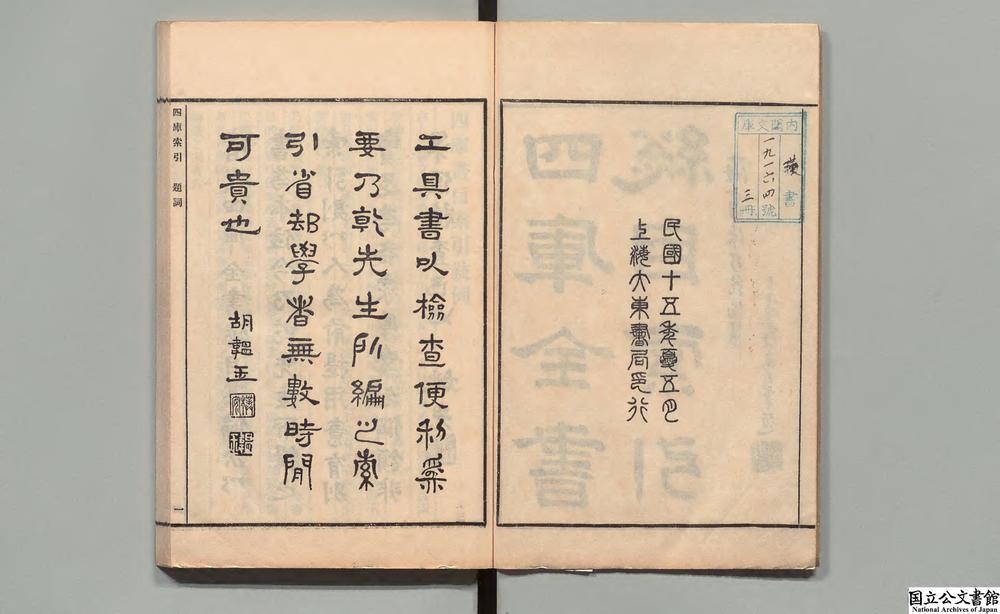 內閣文庫
漢書
一九一六四號
三冊
民國十五年夏五月
上海大東書局印行
工具書以檢查便利爲
要乃乾先生所編之索
引省却學者無數時閒
可貴也
胡韞玉
四庫索引 題詞 一
国立公文書館
National Archives of Japan